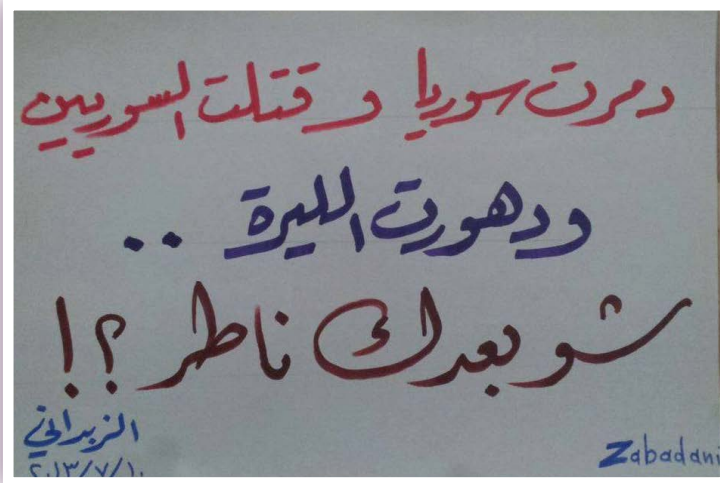 دمرت سوريا و قتلت السوريين
ودهورت الليرة ..
شو بعدك ناطر ؟!
الزبداني
٢٠١٣/٧/١٠
Zabadani